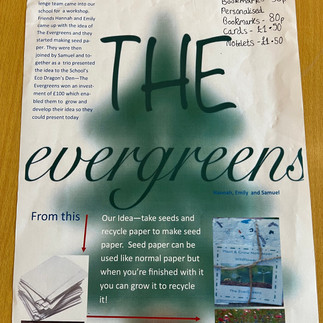 came into our
school for a workshop.
Friends Hannah and Emily
came up with the idea of
The Evergreens and they
started making seed pa-
per. They were then
joined by Samuel and to-
gether as a trio presented
the idea to the School's
Eco Dragon's Den—The
Evergreens won an invest-
ment of £100 which ena-
bled them to grow and
develop their idea so they
could present today
Personalised
Bookmarks - 80p
Cards - £1.50
Notelets - £1.50
THE
evergreens
Hannah, Emily and Samuel
From this
Our Idea—take seeds and
recycle paper to make seed
paper. Seed paper can be
used like normal paper but
when you're finished with it
you can grow it to recycle
it!